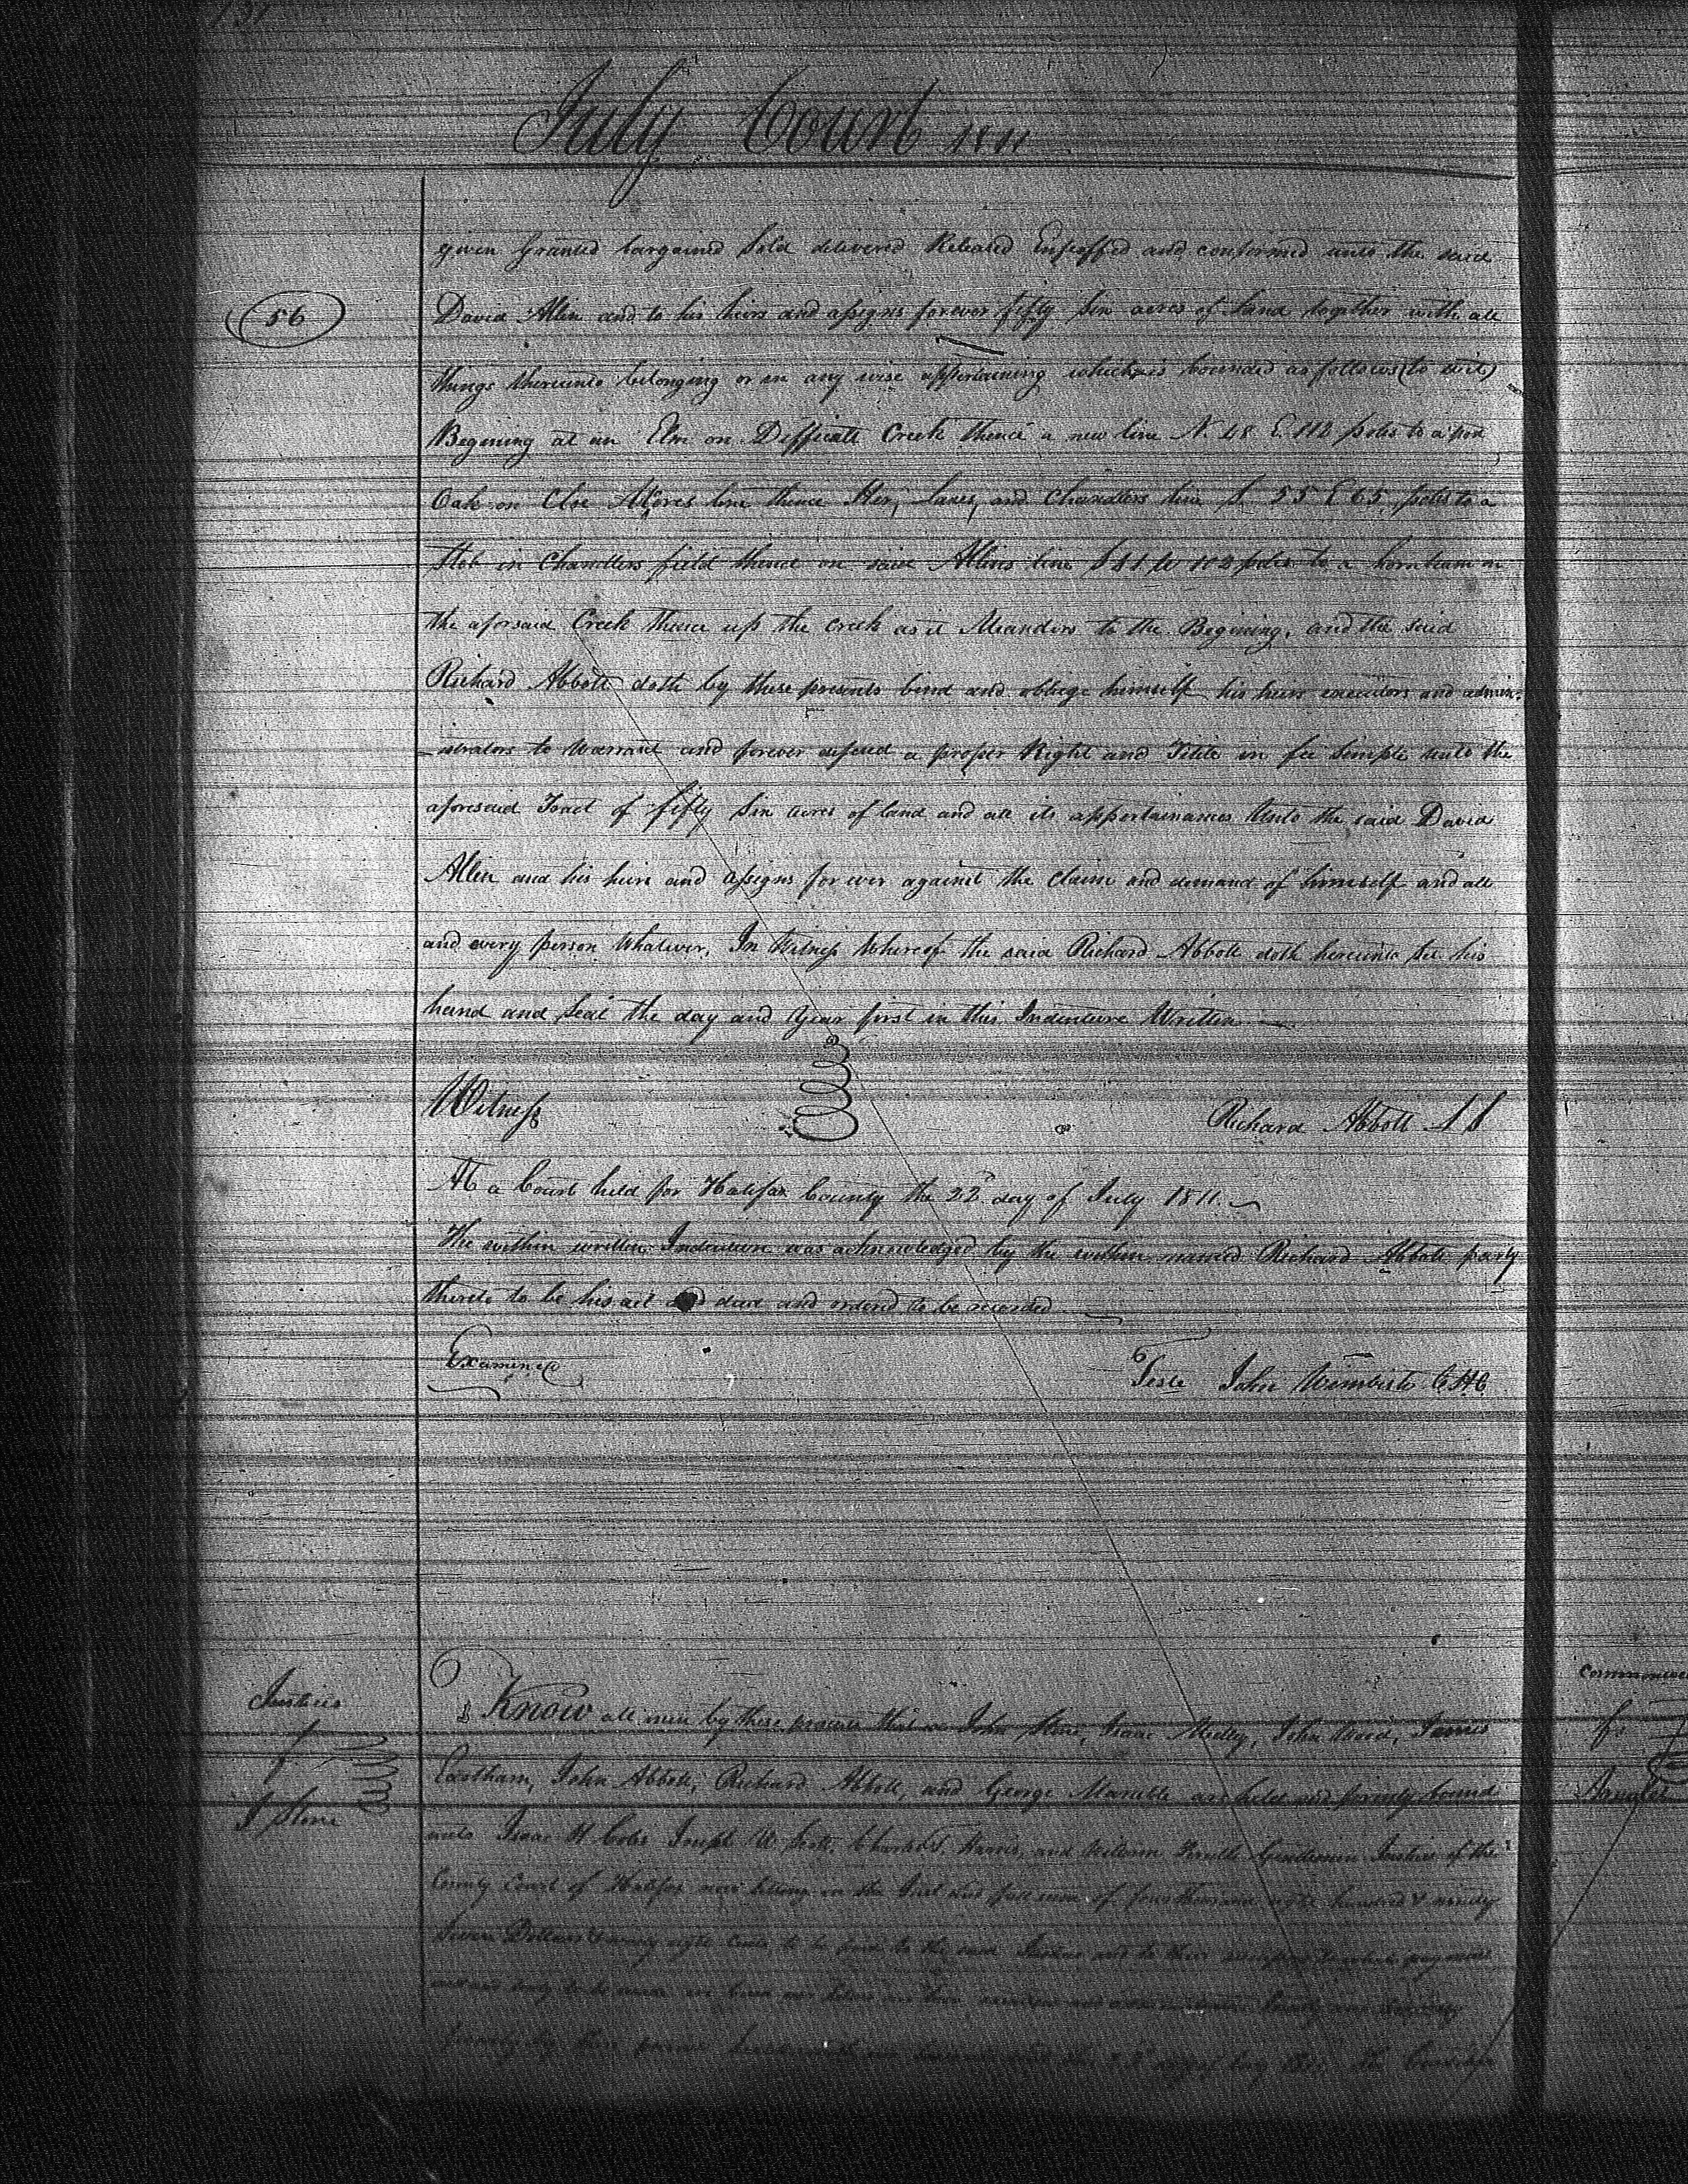 131
July Court 1811
given Granted bargained Sold delivered Released Enfeoffed and confirmed unto the said
56
David Allen and to his heirs and assigns forever fifty Six acres of Land together with all
things thereunto belonging or in any wise appertaining which is bounded as follows (to wit)
Begening at an Elm on Difficult Creek thence a new line N. 48 E. 112 poles to a post
Oak on line thence and Chandlers line S 55 E 65 poles to a
Stob in Chandlers field thence on said Allens line S 81 W 102 poles to a hornbeam on
the aforsaid Creek thence up the creek as it Meanders to the Begining, and the said
Richard Abbott doth by these presents bind and obliege himself his heirs executors and admin-
-istrators to Warrant and forever defend a proper Right and Title in fee Simple unto the
aforesaid Tract of fifty Six acres of land and all its appertainances Unto the said David
Allen and his heirs and assigns for ever against the claim and demand of himself and all
and every person Whatever. In Witness Whereof the said Richard Abbott doth hereunto set his
hand and Seal the day and Year first in this Indenture Written
Witness
Richard Abbott LS
At a Court held for Halifax County the 22d day of July 1811.
The within written Indenture was acknowledged by the within named Richard Abbott party
thereto to be his act and deed and ordered to be recorded
Examined
Teste John Wimbish CHC
Justices
Know all men by these presents that we John Stone, Isaac Medley, John Wood, James
Eastham, John Abbott, Richard Abbott, and George Marable are held and firmly bound
J Stone
unto Isaac H Coles Joseph W Scott, Charles T. Harris, and William Gentlemen Justices of the
County Court of Halifax now sitting in the Just and full sum of four thousand eight hundred & ninety
Seven Dollars eight Cents to be paid to the said Justices and to their successors payment
well and truly to be made we bind our heirs executors and administrators Jointly and severally
firmly by these presents
commonwea